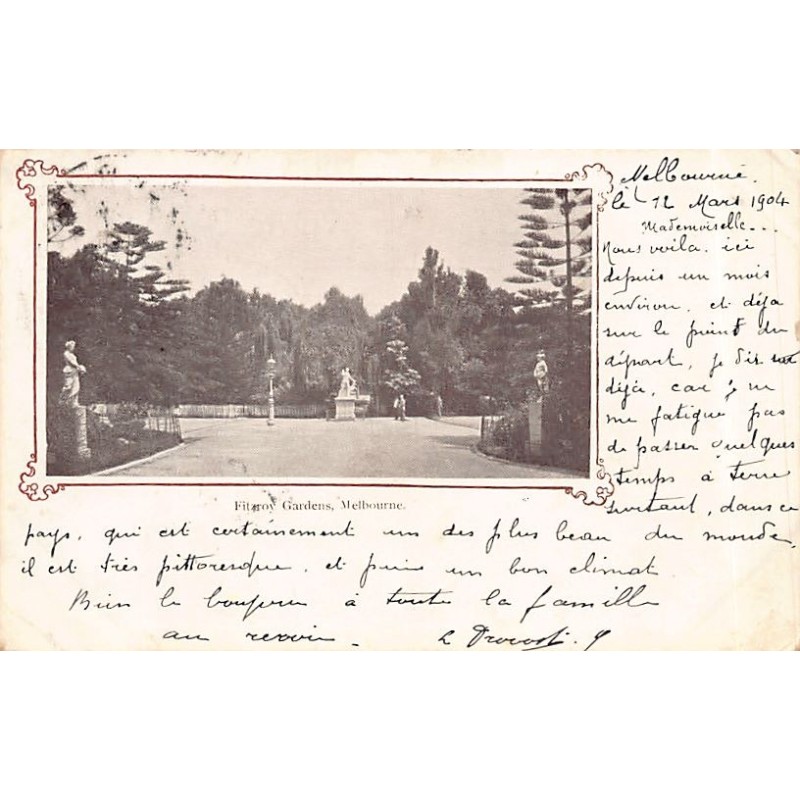 Melbourne.
le 12 Mars 1904
Mademoiselle...
Nous voila. ici
depuis un mois
environ, et déja
sur le point du
départ, je dis
déja, car je ne
me fatigue pas
de passer quelques
temps à terre
surtout, dans ce
Fitzroy Gardens, Melbourne.
pays, qui est certainement un des plus beau du monde,
il est très pittoresque, et puis un bon climat
Bien le bonjour à toute la famille
au revoir.